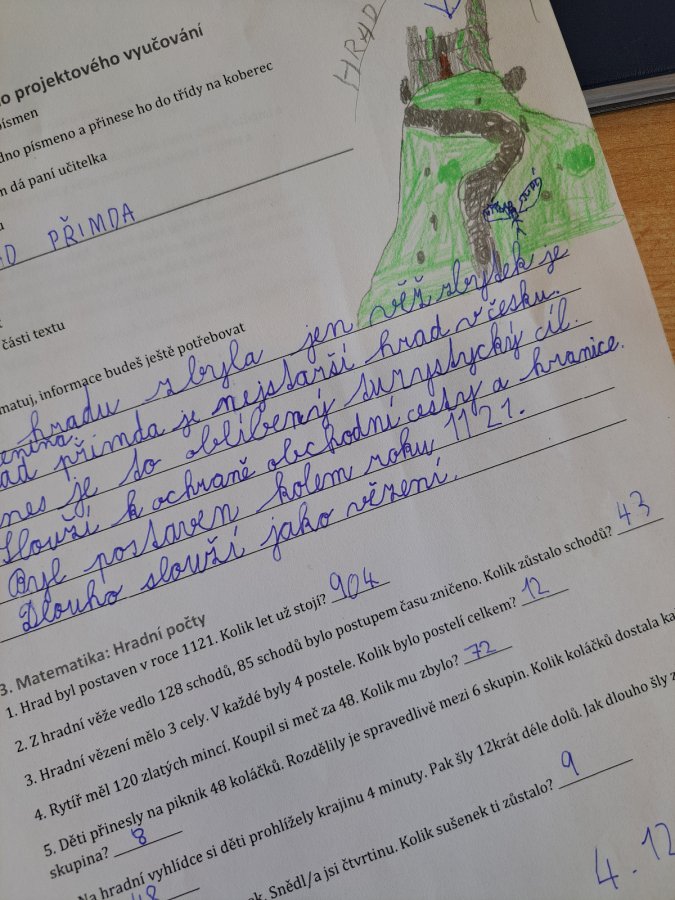 HRAD
o projektového vyučování
ísmen
dno písmeno a přinese ho do třídy na koberec
m dá paní učitelka
u
AD PŘIMDA
části textu
matuj, informace budeš ještě potřebovat
hradu zbyla jen věž, zbytek je
enina.
ad přimda je nejstarší hrad v česku.
nes je to oblíbený turystycký cíl.
Slouží k ochraně obchodní cesty a hranice.
Byl postaven kolem roku 1121.
Dlouho slouží jako vězení.
3. Matematika: Hradní počty
1. Hrad byl postaven v roce 1121. Kolik let už stojí? 904
2. Z hradní věže vedlo 128 schodů, 85 schodů bylo postupem času zničeno. Kolik zůstalo schodů? 43
3. Hradní vězení mělo 3 cely. V každé byly 4 postele. Kolik bylo postelí celkem? 12
4. Rytíř měl 120 zlatých mincí. Koupil si meč za 48. Kolik mu zbylo? 72
5. Děti přinesly na piknik 48 koláčků. Rozdělily je spravedlivě mezi 6 skupin. Kolik koláčků dostala ka
skupina? 8
Na hradní vyhlídce si děti prohlížely krajinu 4 minuty. Pak šly 12krát déle dolů. Jak dlouho šly z
48
ek. Snědl/a jsi čtvrtinu. Kolik sušenek ti zůstalo? 9
4.12